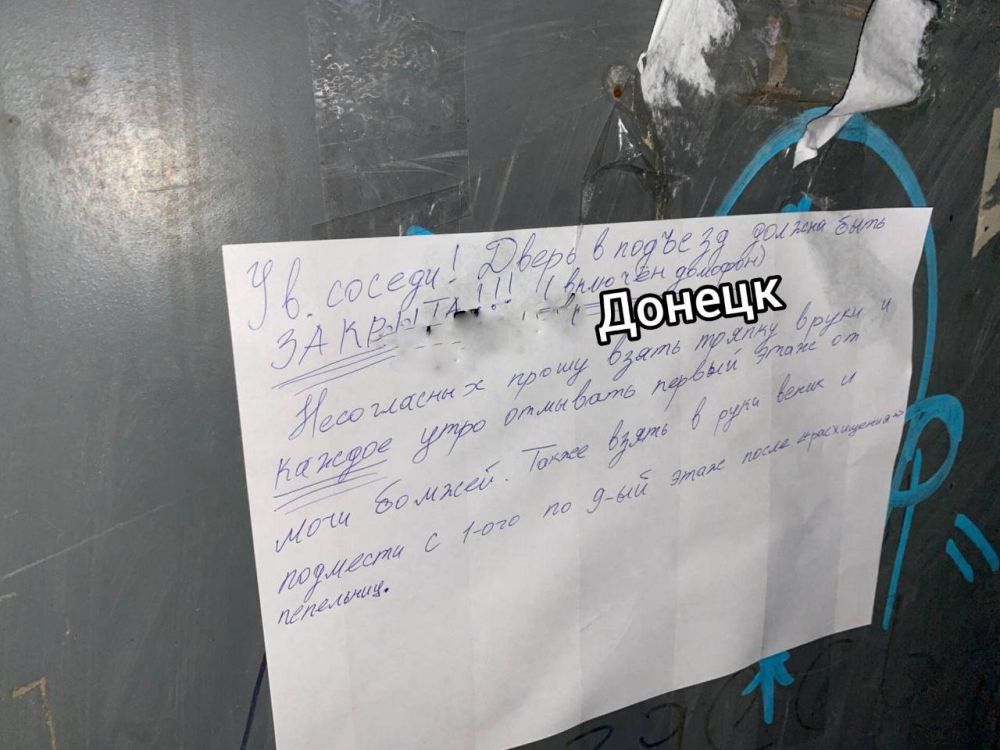 Ув. соседи! Дверь в подъезд должна быть
ЗАКРЫТА!!! (включен домофон)
Донецк
Несогласных прошу взять тряпку в руки и
каждое утро отмывать первый этаж от
мочи бомжей. Также взять в руки веник и
подмести с 1-ого по 9-ый этаж после «расхищения»
пепельниц.